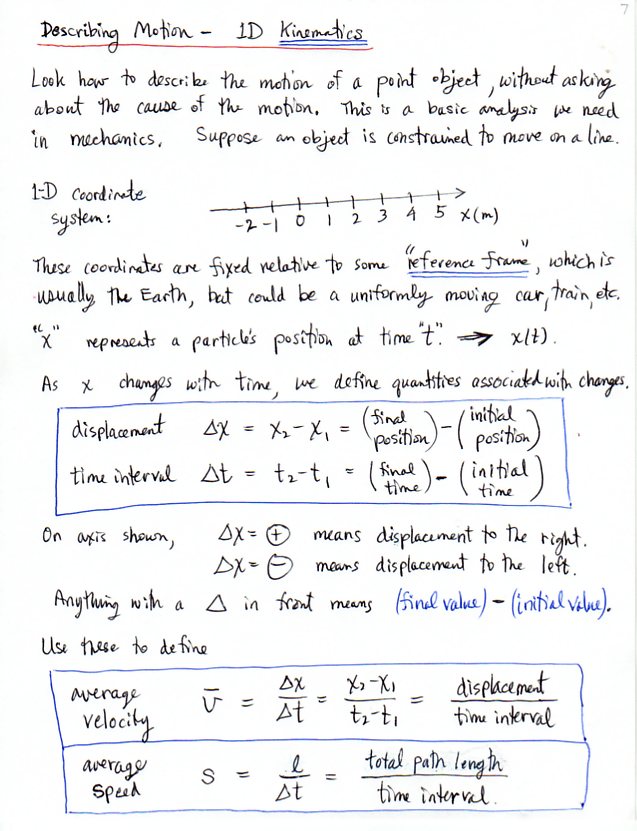 7
Describing Motion - 1D Kinematics
Look how to describe the motion of a point object, without asking
about the cause of the motion. This is a basic analysis we need
in mechanics. Suppose an object is constrained to move on a line.
1-D coordinate
system:
-2 -1 0 1 2 3 4 5 x(m)
These coordinates are fixed relative to some "reference frame", which is
usually the Earth, but could be a uniformly moving car, train, etc.
"x" represents a particle's position at time "t". → x(t).
As x changes with time, we define quantities associated with changes.
displacement Δx = x₂-x₁ = (final position) - (initial position)
time interval Δt = t₂-t₁ = (final time) - (initial time)
On axis shown, Δx = ⊕ means displacement to the right.
Δx = ⊖ means displacement to the left.
Anything with a Δ in front means (final value) - (initial value).
Use these to define
average velocity v̄ = Δx/Δt = x₂-x₁/t₂-t₁ = displacement/time interval
average speed s = l/Δt = total path length/time interval.